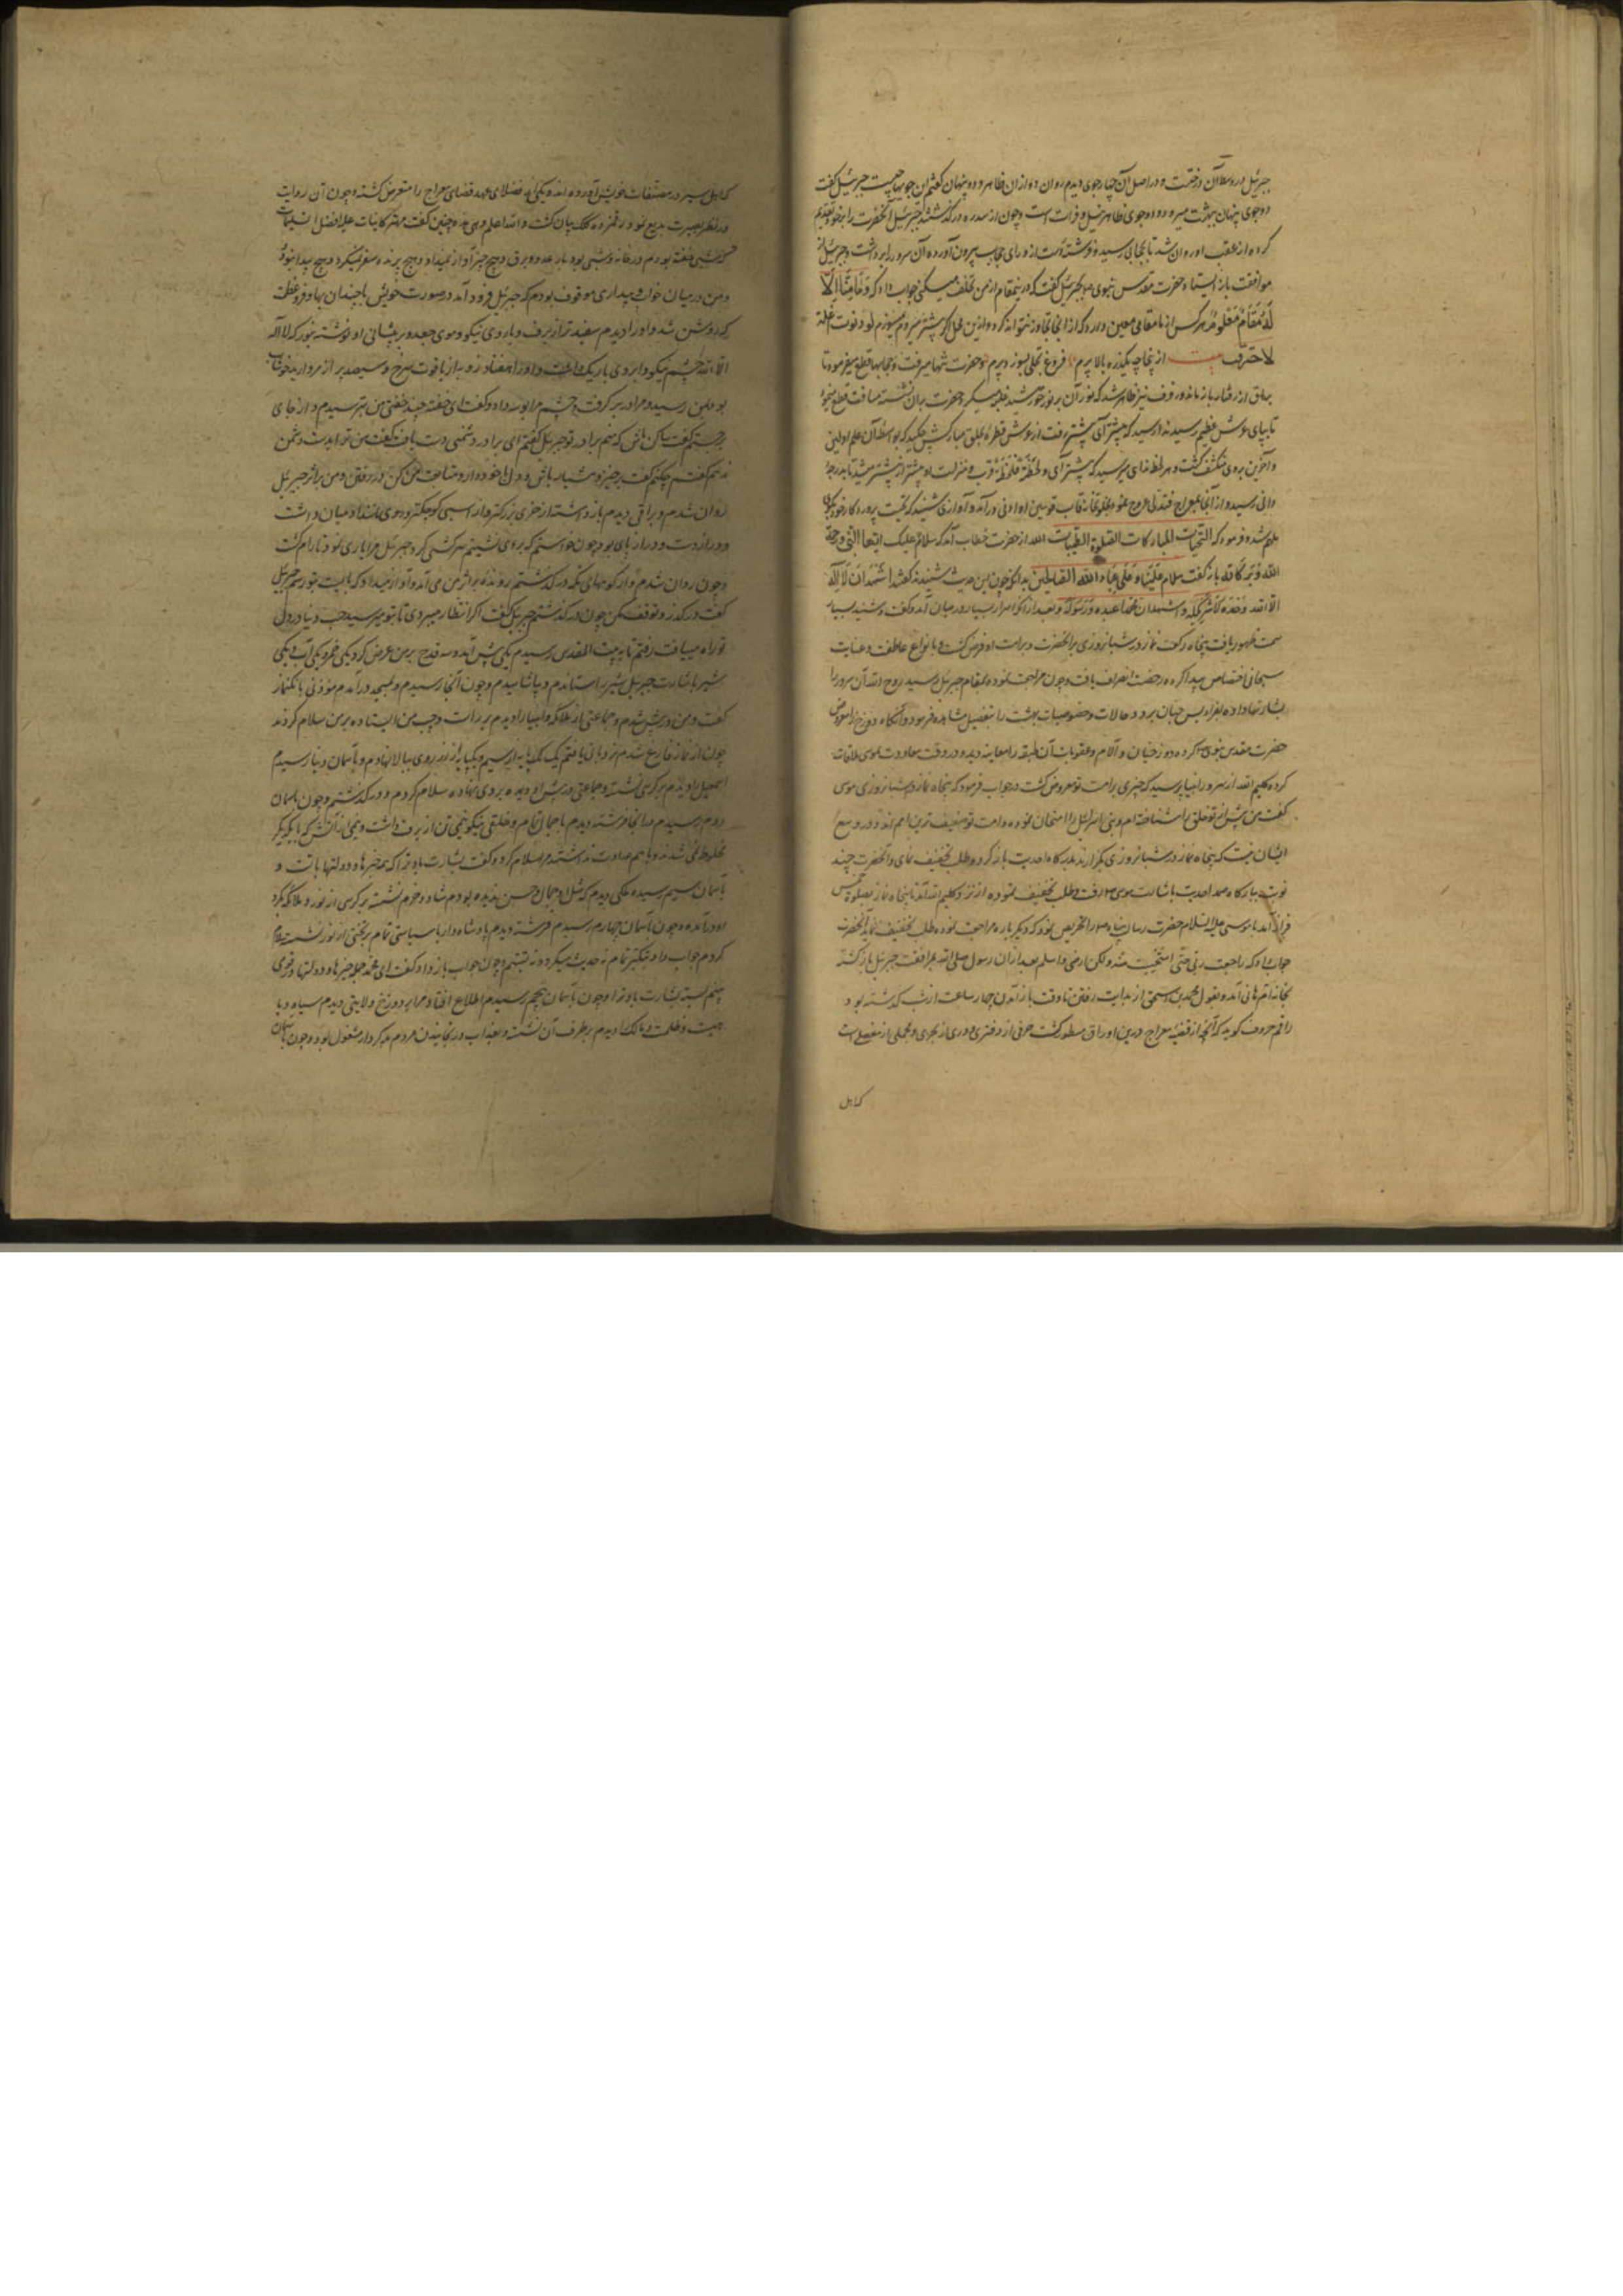 جبرئیل در وسط آن درخت و در اصل آن چهار جوی دیدم روان دو ازان ظاهر و دو پنهان گفتم این جویها چیست جبرئیل گفت
دو جوی پنهان ببهشت میرود و دو جوی ظاهر نیل و فرات است و چون از سدره درگذشتند جبرئیل آنحضرت را بر خود تقدیم
کرده از عقب او روان شد تا بحجابی رسید و فرشته دست از ورای حجاب بیرون آورده آن سرور را برداشت و جبرئیل از
موافقت باز ایستاد حضرت مقدس نبوی بجبرئیل گفت که درینمقام از من تخلف میکنی جواب داد که وَمَا مِنَّا اِلَّا
لَهُ مَقَامٌ مَعْلُومٌ هر کس از ما مقامی معین دارد که از انجا تجاوز نتواند کرد و ازین محل اگر پیشتر میروم میسوزم لو دنوت انملة
لاحترقت بیت از پنجا چه یکذره بالا پرم فروغ تجلی بسوزد پرم و حضرت تنها میرفت و حجابها قطع میفرمود تا
براق از رفتار باز ماند و رفرف سبز ظاهر شد که نور آن بر نور خورشید غلبه میکرد و حضرت بران نشسته مسافت قطع
تا بپای عرش عظیم رسید ندا رسید که پیشتر آی پیشتر رفت از عرش قطرهٔ بحلق مبارکش چکید که بواسطه آن علم اولین
و آخرین بر وی منکشف گشت و هر لحظه ندای میرسید که پیشتر آی و لحظه فلحظه قرب و منزلت او پیشتر از پیشتر میشد تا بدرجه
دانی رسید و از آنجا بمعراج فتدلی عروج نموده بخلوتخانه قاب قوسین او ادنی درآمد و آوازی شنید که تحیت پروردگار خود بگوی
ملهم شده فرمود که التحیات المبارکات الصلوة الطیبات لله از حضرت خطاب آمد که سلام علیک ایها النبی و رحمة
الله وبرکاته باز گفت سلام علینا و علی عباد الله الصالحین ملائکه چون این حدیث شنیدند گفتند اشهد ان لا اله
الا الله وحده لا شریک له و اشهد ان محمدا عبده و رسوله و بعد ازانکه اسرار بسیار در میان آمد و گفت و شنید بسیار
سمت ظهور یافت پنجاه رکعت نماز در شبانروزی بر آنحضرت و بر امت او فرض گشت و بانواع عاطفت و عنایت
سبحانی اختصاص پیدا کرده رخصت انصراف یافت و چون مراجعت نموده بمقام جبرئیل رسید روح الله آن سرور را
بشارتها داده بفرادیس جنان برد و حالات و خصوصیات بهشت را بتفصیل مشاهده فرمود و آنگاه دوزخ را معروض
حضرت مقدس نبوی کرده دوزخیان و آلام و عقوبات آن طبقه را معاینه دید و در وقت معاودت بموسی ملاقات
کرده کلیم الله از سرور انبیا پرسید که چیزی بر امت تو مفروض گشت در جواب فرمود که پنجاه نماز در شبانروزی موسی
گفت من پیش از تو خلق را شناخته ام و بنی اسرائیل را امتحان نموده و امت تو ضعیف ترین امم اند و در وسع
ایشان نیست که پنجاه نماز در شبانروزی بگزارند بدرکاه احدیت بازگرد و طلب تخفیف نمای و آنحضرت چند
نوبت ببارگاه صمد احدیت باشارت موسی میرفت و طلب تخفیف نموده از نزد کلیم الله آمد تا پنجاه نماز بصلوة خمس
قرار آمد باز موسی علیه السلام حضرت رسالت پناه را تحریص نمود که دیگر باره مراجعت نموده طلب تخفیف نماید آنحضرت
جواب داد که راجعت ربی حتی استحییت منه ولکن ارضی و اسلم بعد ازان رسول صلی الله بمرافقت جبرئیل بازگشته
بخانه ام هانی آمد و بقول محمد بن اسحق از بدایت رفتن تا وقت باز آمدن چهار ساعت از شب گذشته بود
راقم حروف گوید که آنچه از قصه معراج درین اوراق مسطور گشت حرفی از دفتری و دری از بحری و مجملی از مفصلی است
که اهل
که اهل سیر در مصنفات خویش آورده اند و یکی از فضلای عهد قضای معراج را متعرض گشته و چون آن روایت
در نظر بصیرت بدیع نمود رقمزده کلک بیان گشت والله اعلم وی چنین گفت مهتر کاینات علیه افضل التسلیمات
که شبی خفته بودم در خانه و شبی بود با رعد و برق و هیچ چیز آواز نمیداد و هیچ پرنده سفر نمیکرد و هیچ پیدا نبود
و من در میان خواب و بیداری موقوف بودم که جبرئیل فرود آمد در صورت خویش با چندان بها و فر و عظمت
که روشن شد و او را دیدم سفیدتر از برف و با روی نیکو و موی جعد و بر پیشانی او نوشته بنور که لا اله
الا الله چشم نیکو و ابروی باریک داشت و او را هفتاد از یاقوت سرخ و سیصد پر از مروارید خوشاب
بود بمن رسید و مرا در بر گرفت و چشم مرا بوسه داد و گفت ای خفته چند خفتی من بترسیدم و از جای
برجستم گفت ساکن باش که منم برادر تو جبریل گفتم ای برادر دشمنی دست یافت گفت من ترا بدست دشمن
ندهم گفتم چکنم گفت برخیز و هشیار باش و دل با خود دار و متابعت من کن در رفتن و من بر اثر جبرئیل
روان شدم و براقی دیدم بازداشته از خری بزرگتر و از اسبی کوچکتر و میان داشت
و دراز دست و دراز پای بود چون خواستم که بر وی نشینم سرکشی کرد و جبرئیل مرا یاری نمود تا رام گشت
و چون روان شدم و از کوههای مکه درگذشتم روندهٔ بر اثر من می آمد و آواز میداد که بایست تو رسم جبرئیل
گفت درگذر و توقف مکن چون درگذشتم جبرئیل گفت اگر انتظار میبردی تا بتو میرسید حب دنیا در دل
تو راه مییافت رفتم تا به بیت المقدس رسیدم یکی پیش آمد و سه قدح بر من عرض کرد یکی خمر و یکی آب و یکی
شیر باشارت جبرئیل شیر را ستاندم و بیاشامیدم و چون آنجا رسیدم و بمسجد درآمدم مؤذنی بانگ نماز
گفت و من در پیش شدم و جماعتی از ملائکه و انبیا را دیدم بر راست و چپ من ایستاده بر من سلام کردند
چون از نماز فارغ شدم نردبان یافتم یک پایه از سیم و یک پایه از زر روی ببالا نهادم و بآسمان دنیا رسیدم
اسمعیل را دیدم بر کرسی نشسته و جماعتی در پیش او دیده بر وی نهاده سلام کردم و درگذشتم و چون بآسمان
دوم رسیدم در آنجا فرشته دیدم با جمال تمام و خلقی نیکو نیمی تن از برف داشت و نیمی از آتش که با یکدیگر
مخلوط نمی شدند و با هم عداوت نداشتند مرا سلام کرد و گفت بشارت باد ترا که همه خیرها و دولتها با تست و
بآسمان سیم رسیده ملکی دیدم که مثل او بجمال و حسن ندیده بودم شاد و خرم نشسته بر کرسی از نور و ملائکه گرد
او درآمده و چون بآسمان چهارم رسیدم فرشته دیدم پادشاه وار با سیاستی تمام بر تختی از نور نشسته سلام
کردم جواب داد تمام نه حدیث میکرد و نه تبسم و چون جواب باز داد گفت ای محمد جمله خیرها و دولتها
بشارت باد ترا و چون بآسمان پنجم رسیدم اطلاع افتاد مرا بر دوزخ ولایتی دیدم سیاه و با
هیبت و ظلمت و مالک را دیدم بر طرف آن نشسته و بعذاب و رنجانیدن مردم بدکردار مشغول بود و چون بآسمان